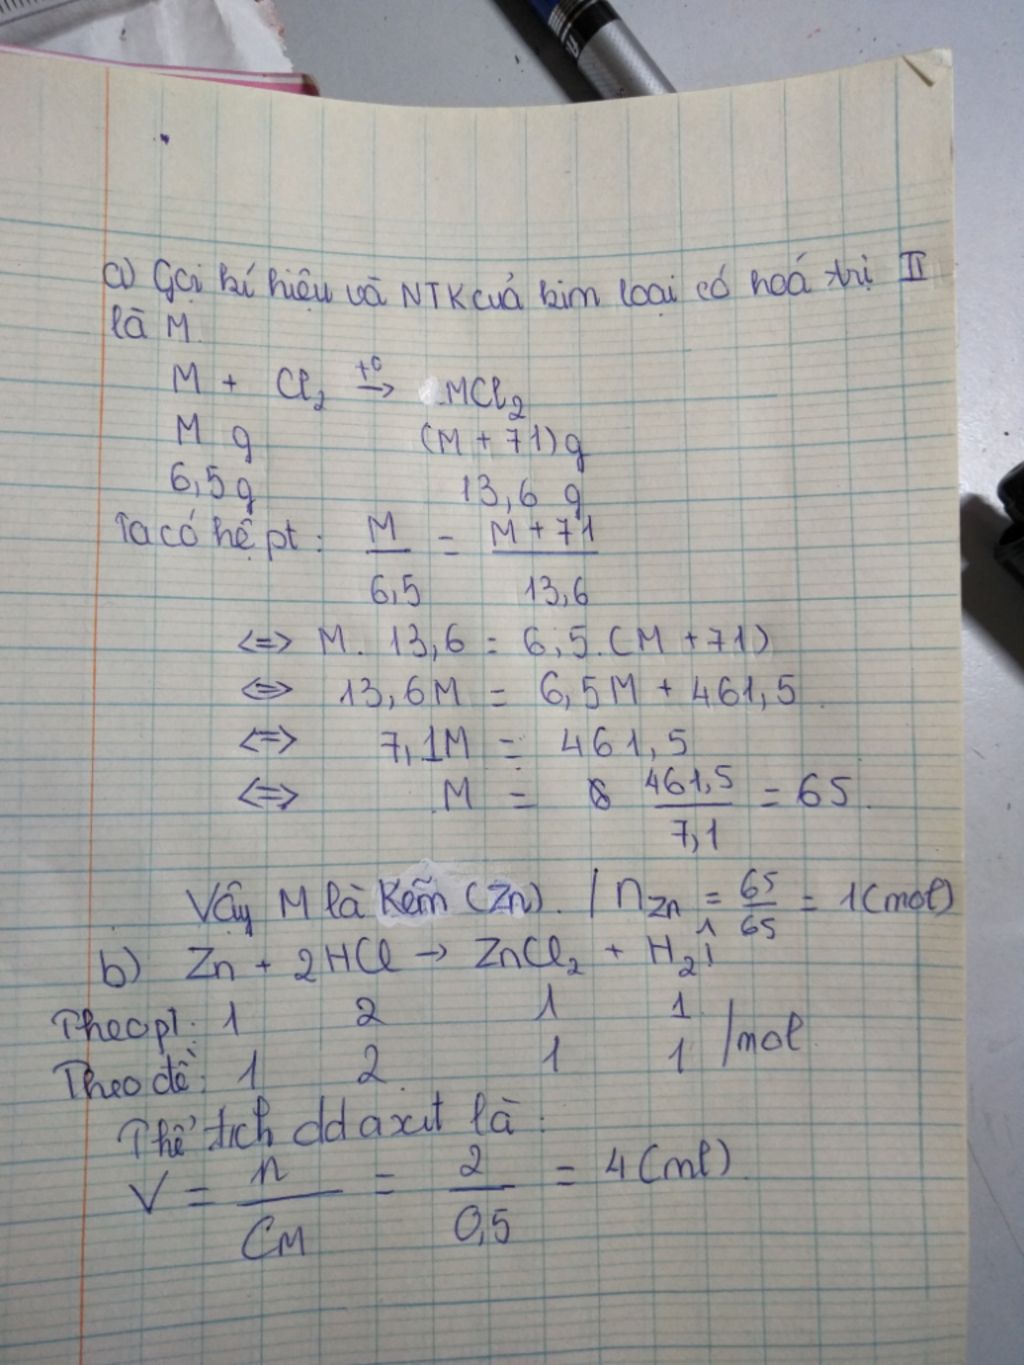 a) Gọi kí hiệu và NTK của kim loại có hoá trị II
là M.
M + Cl₂ t⁰→ MCl₂
M g (M + 71) g
6,5 g 13,6 g
Ta có hệ pt: M/6,5 = (M + 71)/13,6
<=> M. 13,6 = 6,5.(M + 71)
<=> 13,6M = 6,5M + 461,5
<=> 7,1M = 461,5
<=> M = 461,5/7,1 = 65.
Vậy M là Kẽm (Zn). / nZn = 65/65 = 1(mol)
b) Zn + 2HCl → ZnCl₂ + H₂↑
Theo pt: 1 2 1 1
/mol
Theo đề: 1 2 1 1
Thể tích dd axit là:
V = n/CM = 2/0,5 = 4(ml).